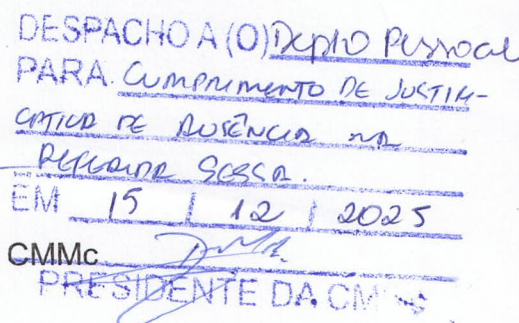 DESPACHO A (O) Depto Pessoal
PARA. CUMPRIMENTO DE JUSTIFI-
CATIVA DE AUSÊNCIA NA
REFERIDA SESSÃO.
EM 15 / 12 / 2025
CMMc
PRESIDENTE DA CM